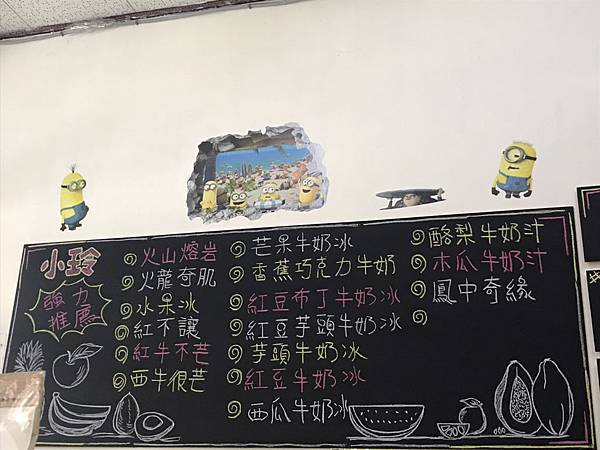 小玲
強力
推薦
火山熔岩
火龍奇肌
水果冰
紅不讓
紅牛不芒
西牛很芒
芒果牛奶冰
香蕉巧克力牛奶
紅豆布丁牛奶冰
紅豆芋頭牛奶冰
芋頭牛奶冰
紅豆牛奶冰
西瓜牛奶冰
酪梨牛奶汁
木瓜牛奶汁
鳳中奇緣